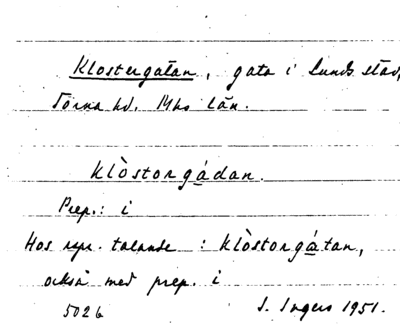 Klostergatan, gata i Lunds stad,
Torna hd. Mhs län.
klòstorgádan.
Prep.: i
Hos repr. talande : klòstorgátan,
också med prep. i
502b S. Ingers 1951.